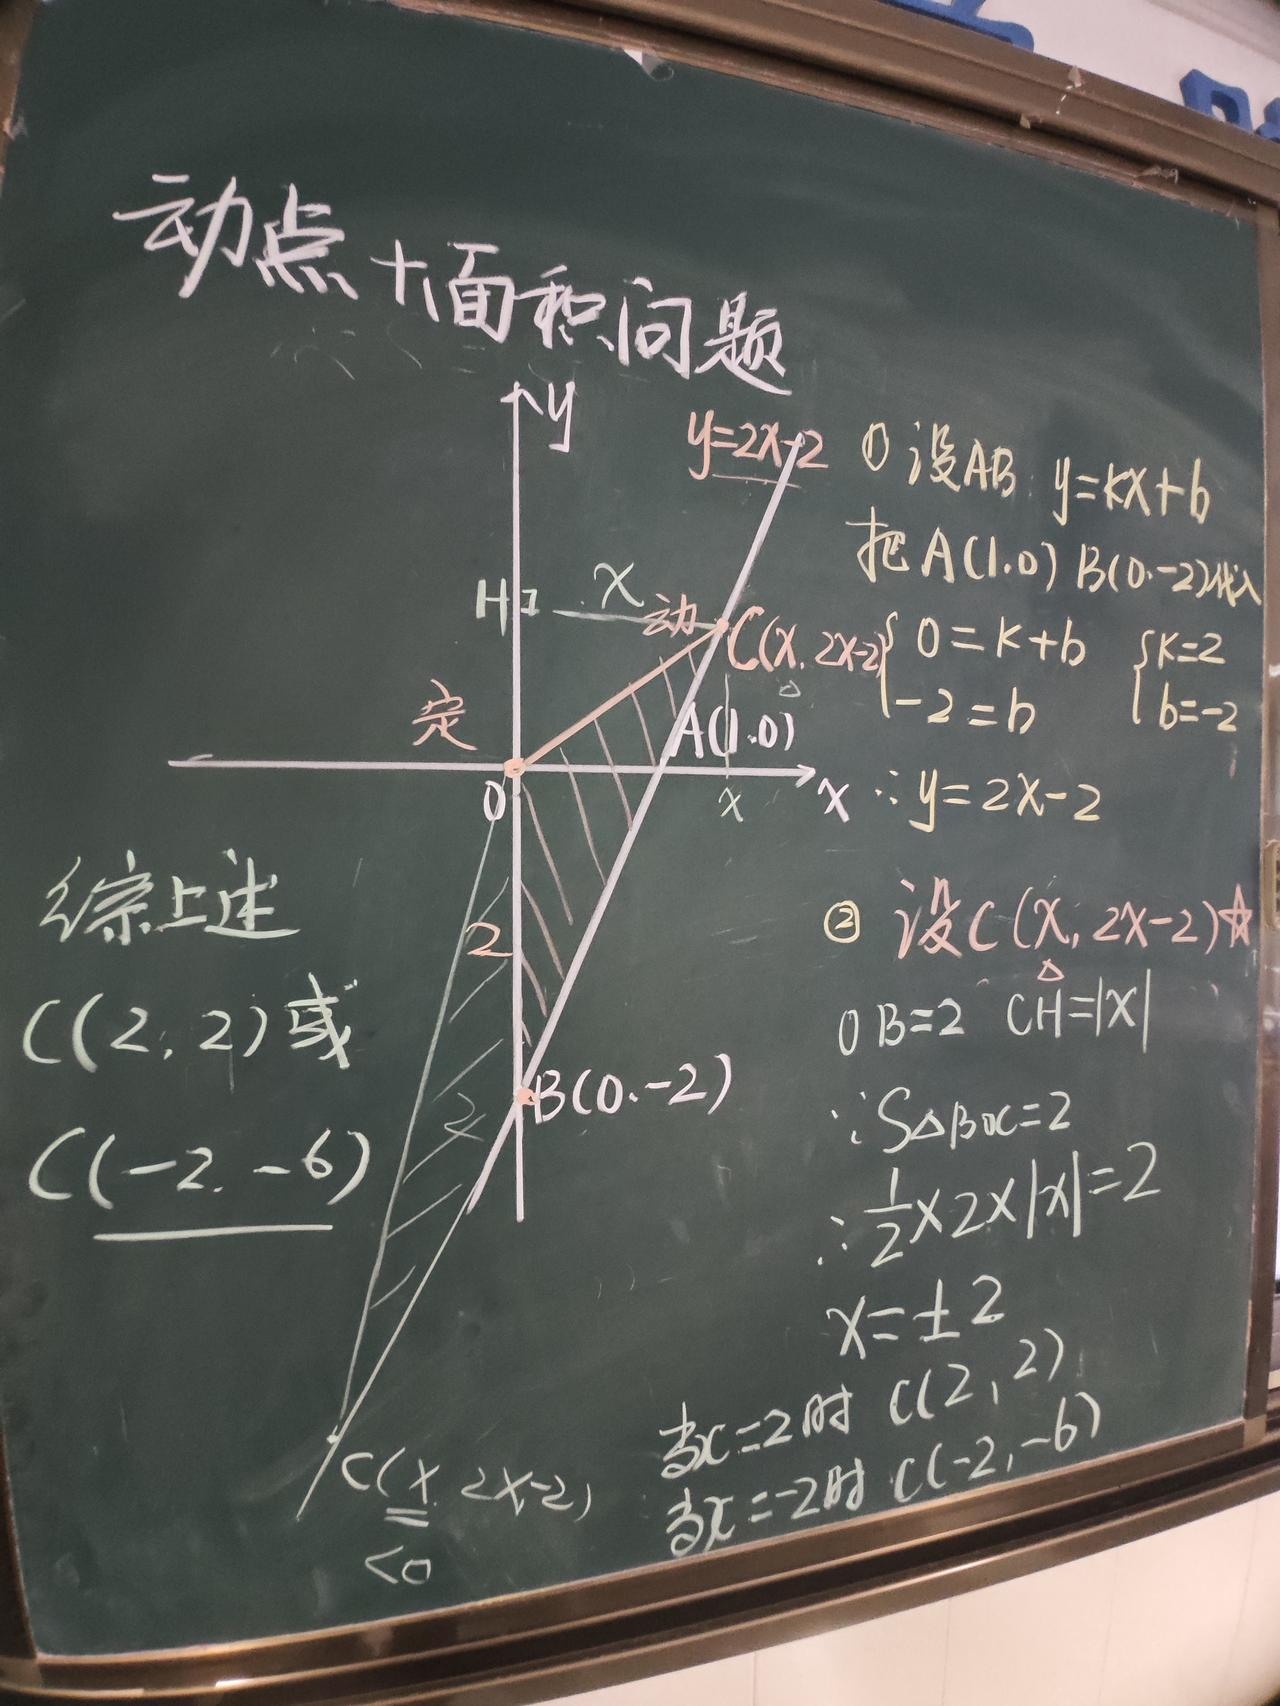 动点+面积问题
y
y=2x-2
H
x
动
C(x, 2x-2)
定
A(1.0)
O
x
x
2
B(0.-2)
2
C(x, 2x-2)
<0
综上述
C(2, 2)或
C(-2. -6)
① 设AB y=kx+b
把A(1.0) B(0.-2)代入
{0=k+b {k=2
-2=b b=-2
∴y=2x-2
② 设C(x, 2x-2)☆
△
OB=2 CH=|x|
∵S△BOC=2
∴½×2×|x|=2
x=±2
当x=2时 C(2, 2)
当x=-2时 C(-2,-6)